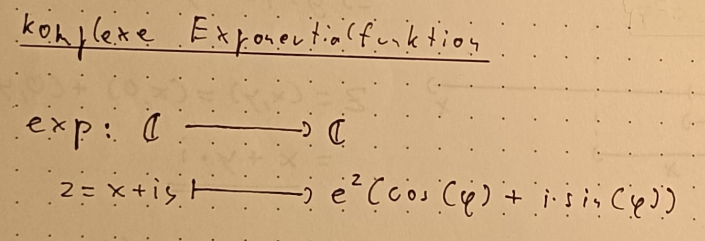 komplexe Exponentialfunktion
exp: ℂ ⟶ ℂ
z = x + iy ⟼ e^z (cos(φ) + i·sin(φ))